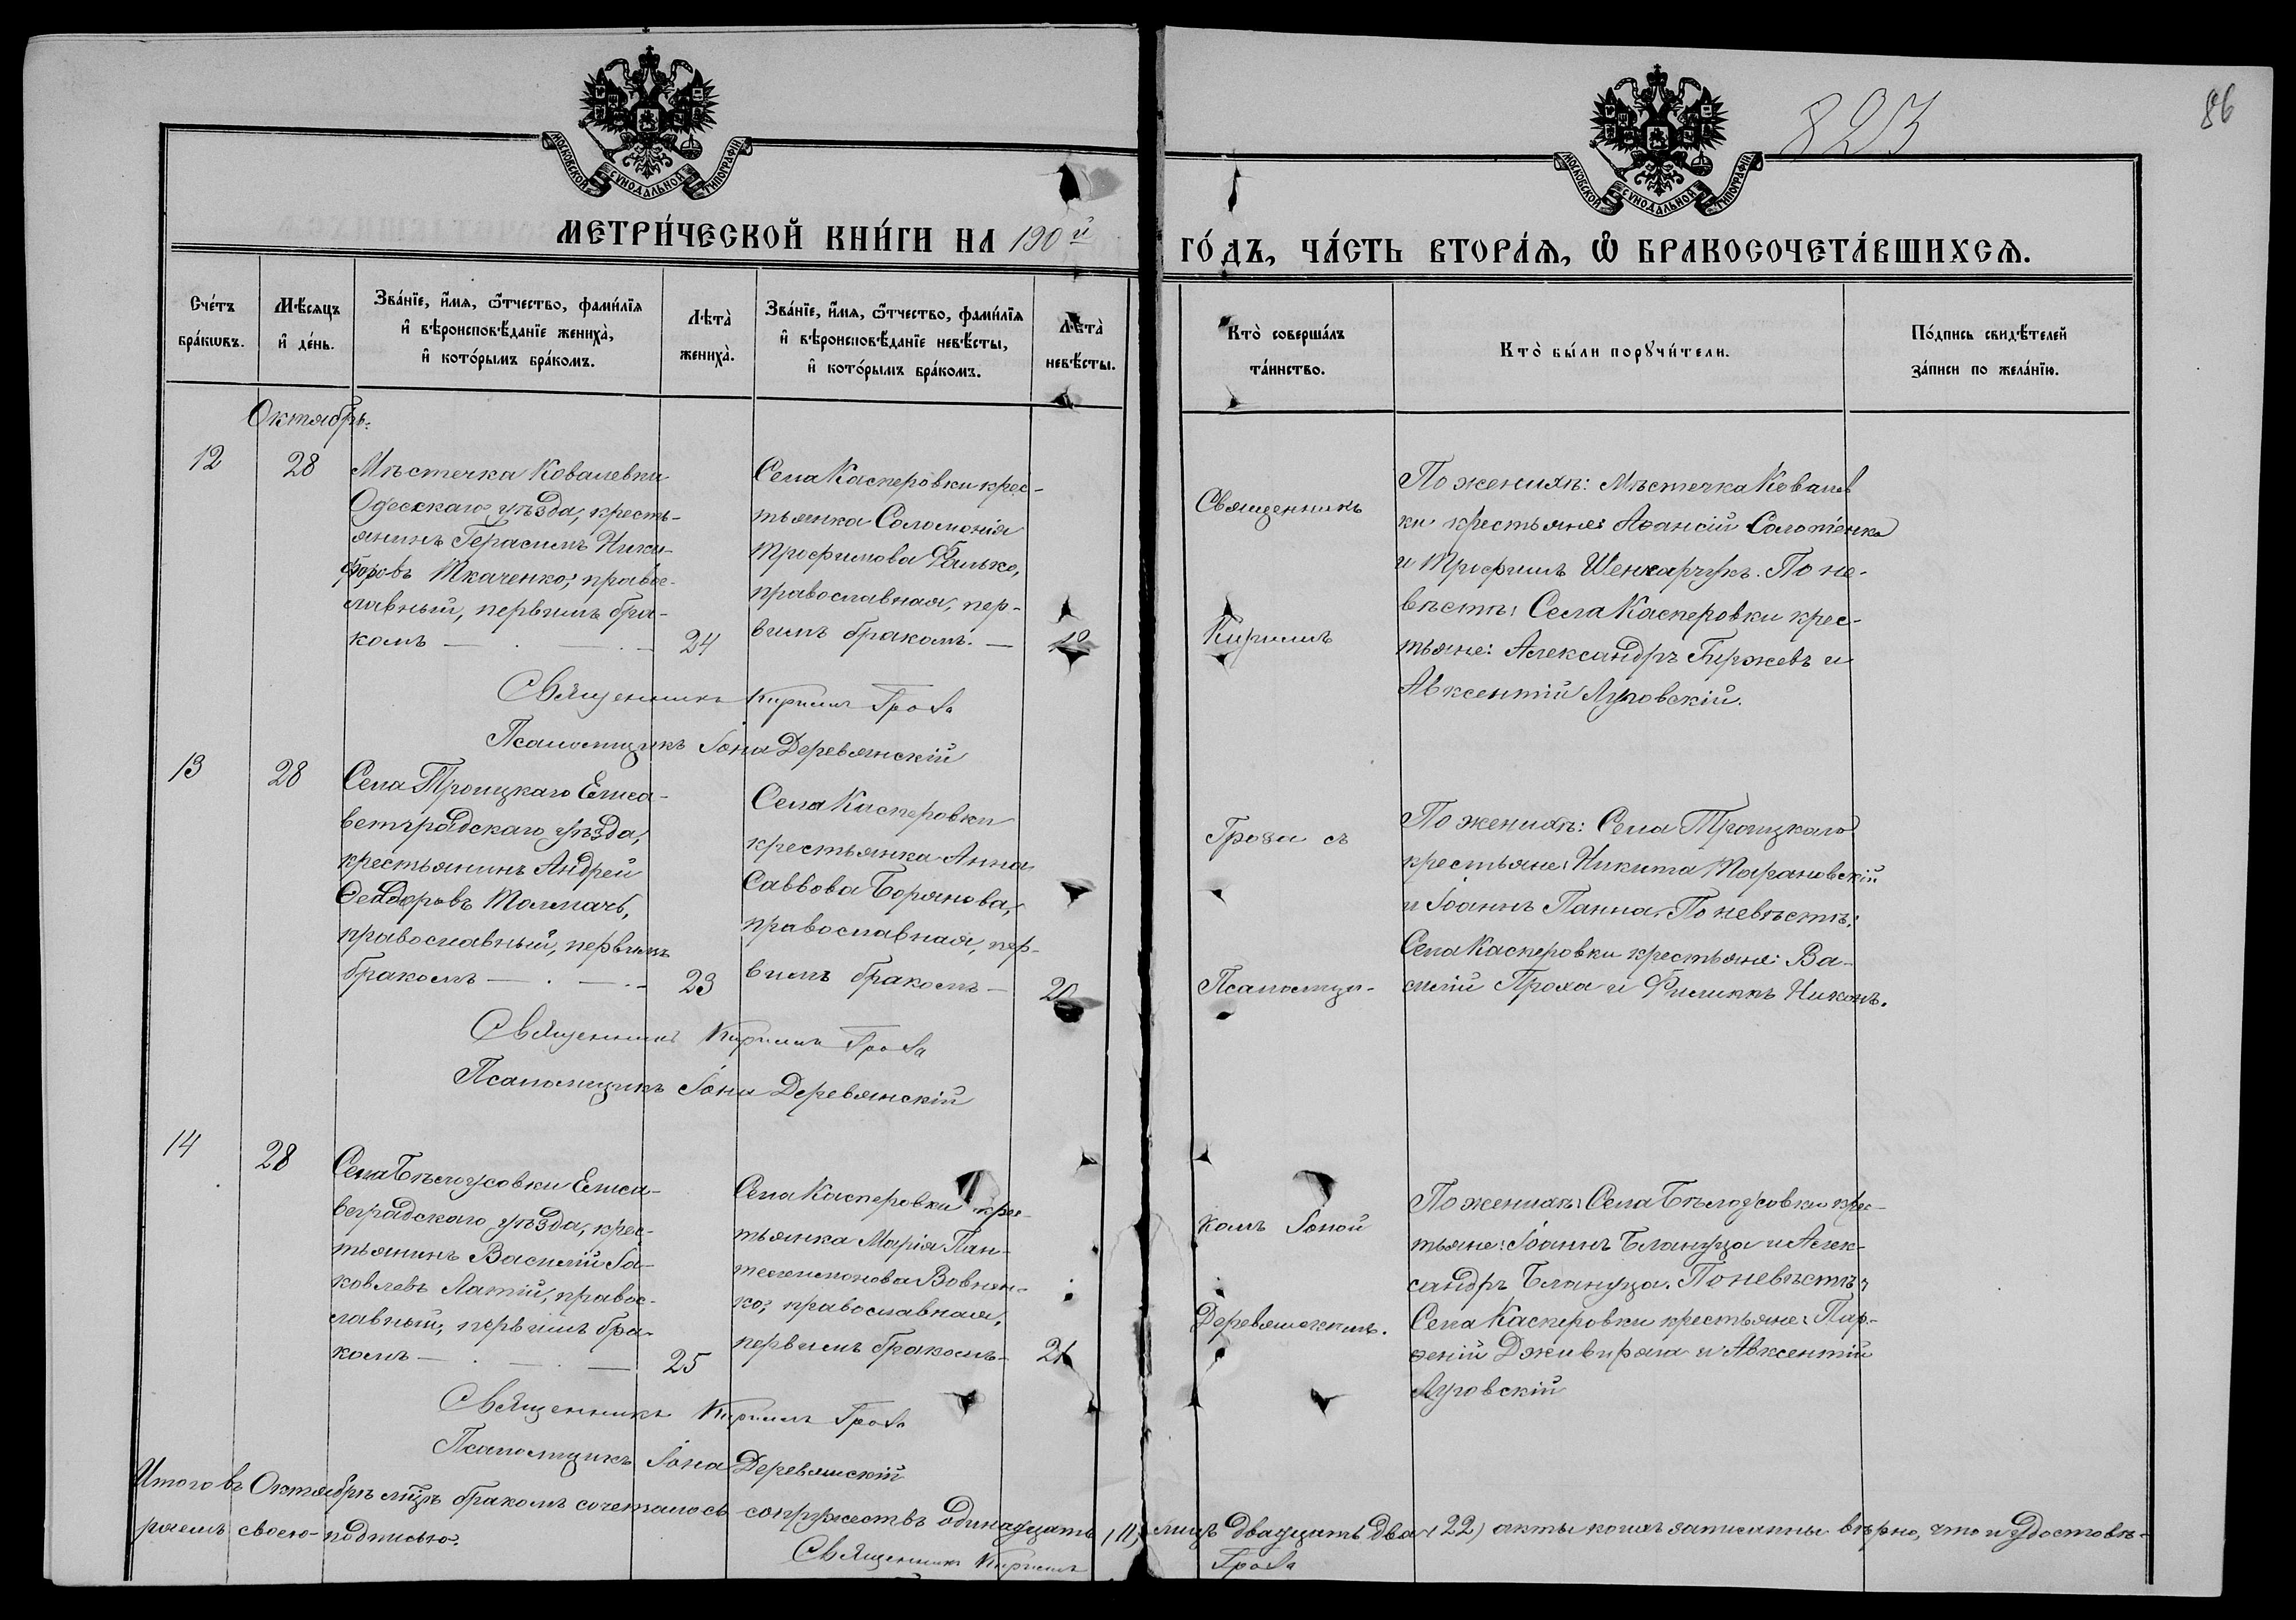 823
86
МОСКОВСКОЙ СѴНОДАЛЬНОЙ ТИПОГРАФІИ
МОСКОВСКОЙ СѴНОДАЛЬНОЙ ТИПОГРАФІИ
МЕТРИ́ЧЕСКОЙ КНИ́ГИ НА 190й
ГО́ДЪ, ЧА́СТЬ ВТОРА́Я, Ѽ БРАКОСОЧЕТА́ВШИХСЯ.
Сче́тъ
бра́кѡвъ.
Мѣ́сяцъ
и҆ де́нь.
Зва́нїе, и҆́мя, ѻ҆́тчество, фами́лїя
и҆ вѣроисповѣ́данїе жениха̀,
и҆ кото́рымъ бра́комъ.
Лѣта̀
жениха̀.
Зва́нїе, и҆́мя, ѻ҆́тчество, фами́лїя
и҆ вѣроисповѣ́данїе невѣ́сты,
и҆ кото́рымъ бра́комъ.
Лѣта̀
невѣ́сты.
Кто̀ соверша́лъ
та́инство.
Кто̀ бы́ли порꙋчи́тели.
По́дпись свидѣ́телей
за́писи по жела́нїю.
Октябрь.
12
28
Мѣстечка Ковалевки
Одесскаго уѣзда, кресть-
янинъ Герасимъ Ники-
форовъ Ткаченко, правос-
лавный, первымъ бра-
комъ
24
Села Касперовки крес-
тьянка Соломонія
Трофимова
православная, пер-
вымъ бракомъ.
Священникъ
Кириллъ
По женихѣ: Мѣстечка Ковалев
ки крестьяне: Аѳанасій Солотенко
и Трофимъ Шенкарукъ. По не-
вѣстѣ: Села Касперовки крес-
тьяне: Александръ Гержевъ и
Авксентій Луговскій.
Священникъ Кириллъ Гроза
Псаломщикъ Іона Деревянскій
13
28
Села Троицкаго Елиса-
ветградскаго уѣзда,
крестьянинъ Андрей
Ѳеодоровъ Толмачъ,
православный, первымъ
бракомъ
23
Села Касперовки
крестьянка Анна
Саввова Борянова,
православная, пер-
вымъ бракомъ
20
Гроза съ
Псаломщи-
По женихѣ: Села Троицкаго
крестьяне: Никита Тарановскій
и Іоаннъ Панна. По невѣстѣ:
Села Касперовки крестьяне: Ва-
силій Проха и Филиппъ Никонъ.
Священникъ Кириллъ Гроза
Псаломщикъ Іона Деревянскій
14
28
Села Бѣлоусовки Елиса-
ветградскаго уѣзда, крес-
тьянинъ Василій Іа-
ковлевъ Латій, правос-
лавный, первымъ бра-
комъ
25
Села Касперовки крес-
тьянка Марія Пан-
телеимонова Вовнян-
ко, православная,
первымъ бракомъ
21
комъ Іоной
Деревянскимъ.
По женихѣ: Села Бѣлоусовки крес-
тьяне: Іоаннъ Блануца и Алек-
сандръ Блануца. По невѣстѣ:
Села Касперовки крестьяне: Пар-
ѳеній и Авксентій
Луговскій
Священникъ Кириллъ Гроза
Псаломщикъ Іона Деревянскій
Итого въ Октябрѣ мцѣ бракомъ сочеталось супружествъ одинадцать (11) лицъ двадцать два (22) акты коихъ записанны вѣрно, что и удостовѣ-
ряемъ своею подписью.
Священникъ Кириллъ Гроза